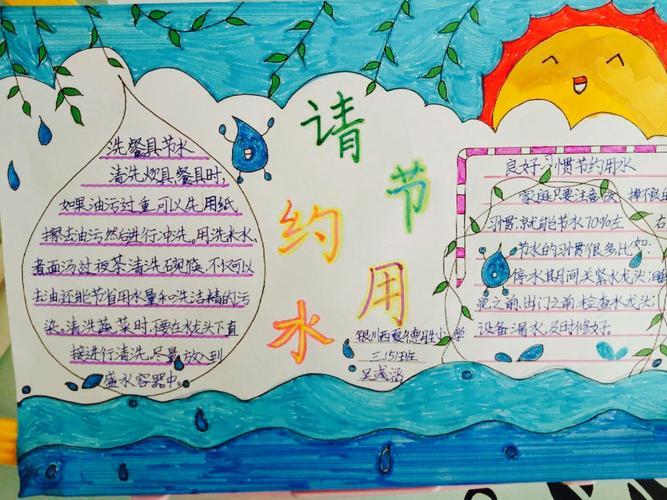 洗餐具节水
清洗炊具、餐具时,
如果油污过重,可以先用纸
擦去油污,然后进行冲洗。用洗米水、
煮面汤过夜茶清洗碗筷,不仅可以
去油还能节省用水量和洗洁精的污
染。清洗蔬菜时,不要在水龙头下直
接进行清洗,尽量放入到
盛水容器中。
请节约用水
良好习惯节约用水
家庭只要注意改掉不良
习惯,就能节水70%左右
节水的习惯很多,比如:
停水其期间关紧水龙头;
之前、出门之前,检查水龙头;
设备漏水,及时修好。
银川西夏德胜小学
三(5)班
吴